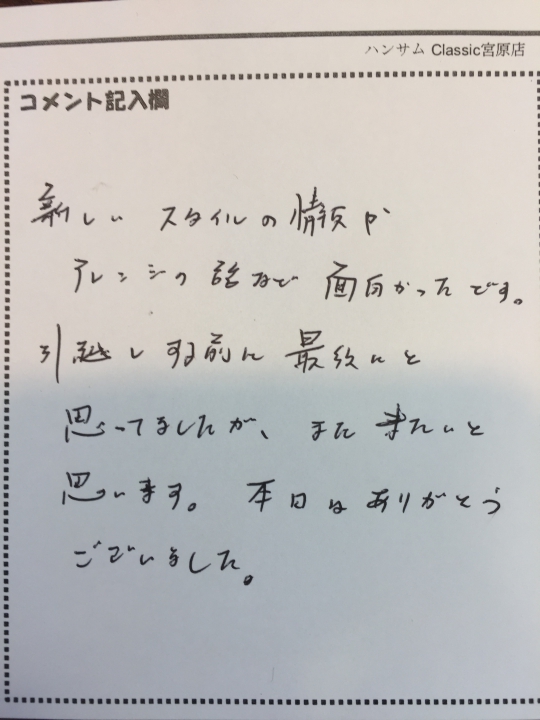 ハンサム Classic宮原店
コメント記入欄
新しい スタイルの情報や
アレンジの話などで 面白かったです。
引越しする前に 最後にと
思ってましたが、また来たいと
思います。本日はありがとう
ございました。